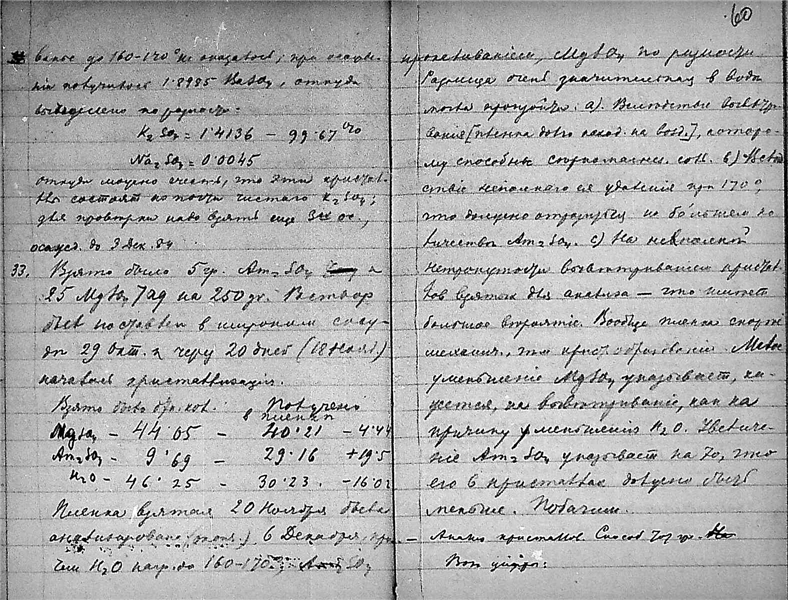 ванье до 160-170° не оказалось; при осажде-
нии получилось 1.8985 BaSO₄, откуда
выведено по разности:
K₂SO₄ = 1.4136 — 99.67 %
Na₂SO₄ = 0.0045
откуда можно счесть, что эти кристал-
лы состоят из почти чистого K₂SO₄;
для проверки надо взять еще ос.,
осажд. до 3 Дек. 84
33. Взято было 5 гр. Am₂SO₄ и
25 MgSO₄ 7aq на 250 гр. Раствор
был поставлен в широком сосу-
де 29 Окт. и через 20 дней (18 Нояб.)
началась кристаллизация.
Взято было Получено
в пленки
MgSO₄ — 44.05 — 40.21 — 4.44
Am₂SO₄ — 9.69 — 29.16 +19.5
H₂O — 46.25 — 30.23. -16.02
Пленка взятая 20 Ноября была
анализирована 6 Декабря, при
чем H₂O нагр. до 160-170. SO₄
60
прокаливанием, MgSO₄ по разности
Разница очень значительная в воде
могла произойти: a). Вследствие выветри-
вания [пленка долго наход. на возд.], которо-
му способны соли. b) Вслед-
ствие неполного ея удаления при 170°,
что должно отразиться на большем ко-
личестве Am₂SO₄. c) На неполной
нетронутости выветриванием кристал-
лов взятых для анализа — что имеет
большое вероятие. Вообще пленка скорее
механич., чем крист. образование.
уменьшение MgSO₄ указывает, ка-
жется, на выветривание, как на
причину уменьшения H₂O. Увеличе-
ние Am₂SO₄ указывает на то, что
его в кристаллах должно быть
меньше. Побачим.
— Анализ кристаллов. Способ тот же.
Вот цифры: